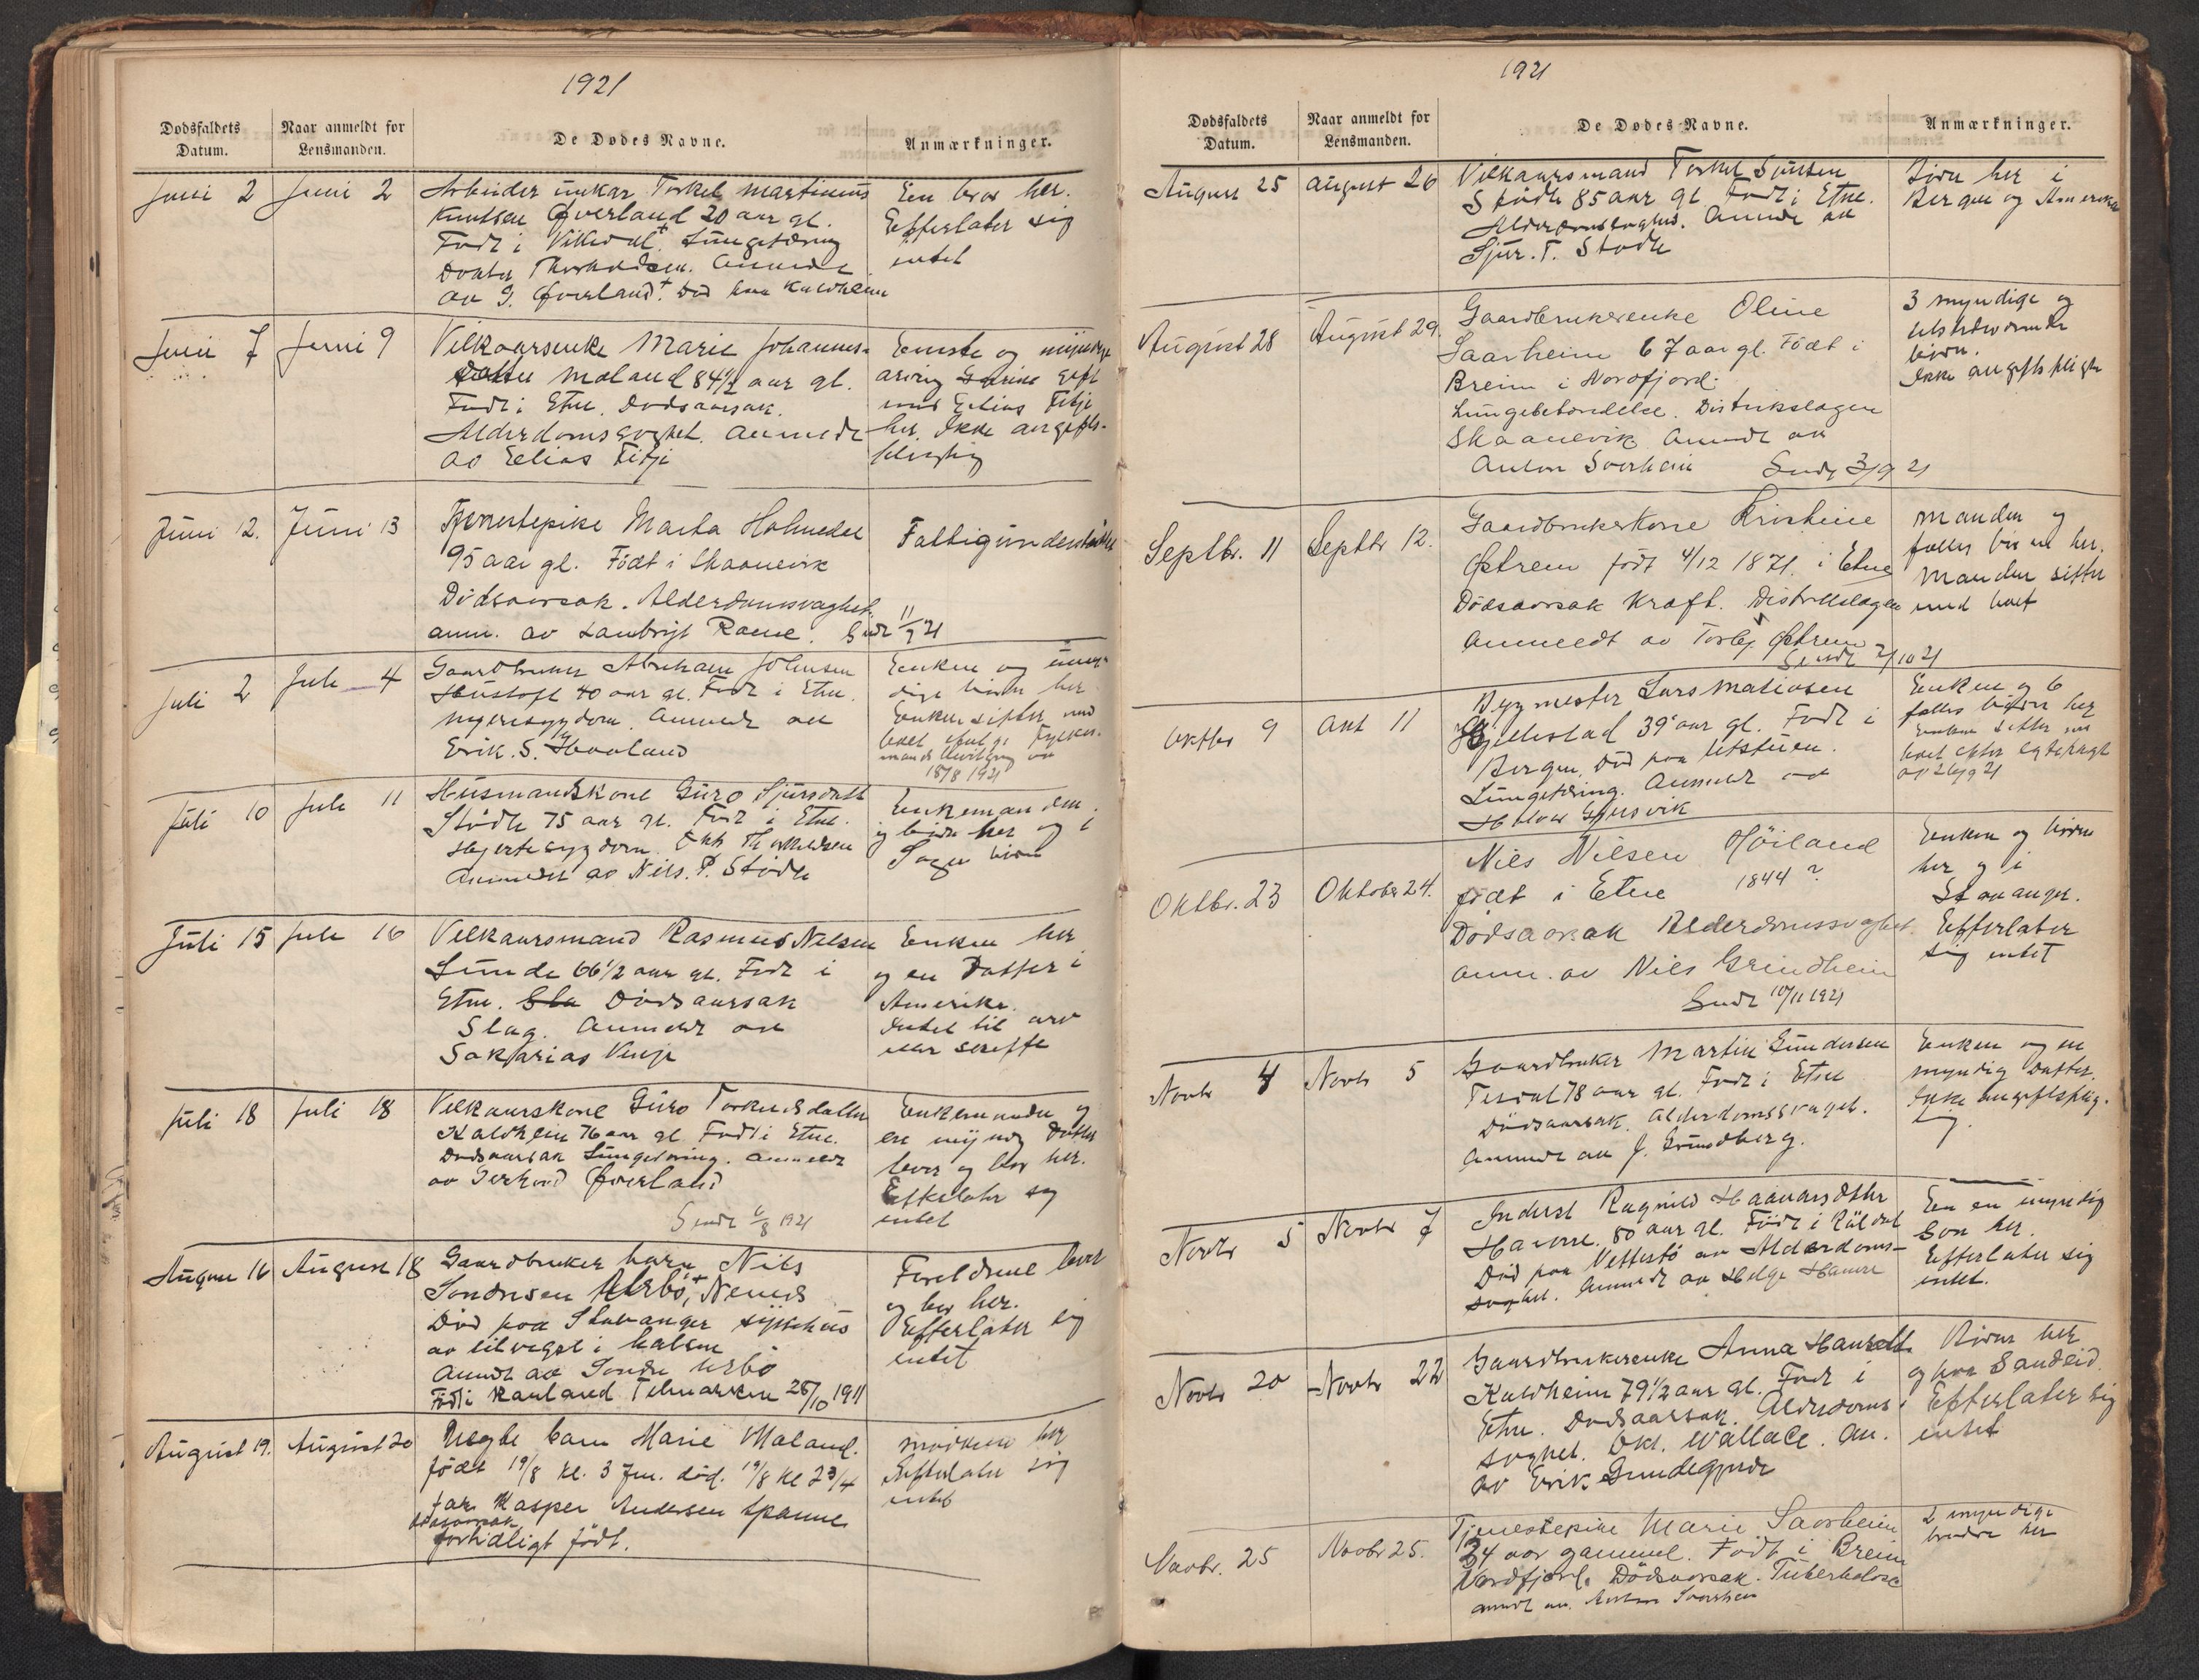 1921
Dødsfaldets
Datum.
Naar anmeldt for
Lensmanden.
De Dødes Navne.
Anmærkninger.
Juni 2 Juni 2
Arbeider unkar Torkel Martinius
Knutsen Øverland 20 aar gl.
Født i Vikedal + Lungetæring
Doktor Thorkeldsen. Anmeldt
av G. Øverland + Død paa Kaldheim
En bror her.
Efterlater sig
intet
Juni 7 Juni 9
Vilkaarsenke Marie Johannes-
datter Møland 84 1/2 aar gl.
Født i Etne. Dødsaarsak.
Alderdomssvaghet. Anmeldt
av Elias Fitje
Eneste og myndige
arving gift
med Elias Fitje
her. Ikke avgifts-
pligtig
Juni 12. Juni 13
Tjenestepike Marta Holmedal
95 aar gl. Født i Skaanevik
Dødsaarsak. Alderdomsvaghet.
anm. av Lambrigt Rame. Sendt 11/7 21
Fattigunderstøttet
Juli 2 Juli 4
Gaardbruker Abraham Johnsen
Hustoft 40 aar gl. Født i Etne.
nyresygdom. Anmeldt av
Erik. S. Haaland
Enken og umyn-
dige børn her
Enken sitter med
boet ifølge Fylkes-
mands bevilgning av
18/8 1921
Juli 10 Juli 11
Husmandskone Guro Sjursdatter
Støle 75 aar gl. Født i Etne.
Hjertesygdom. Dkt Thorkeldsen
Anmeldt av Nils. P. Støle
Enkemanden
og børn her og i
Juli 15 Juli 16
Vilkaarsmand Rasmus Nilsen
Sunde 66 1/2 aar gl. Født i
Etne. Sla Dødsaarsak
Slag. Anmeldt av
Sakarias Vinje
Enken her
og en Datter i
Amerika.
Intet til arv
eller skifte
Juli 18 Juli 18
Vilkaarskone Guro Torkelsdatter
Kaldheim 76 aar gl. Født i Etne.
Dødsaarsak Lungetæring. Anmeldt
av Øverland
Sendt 6/8 1921
Enkemanden og
en myndig datter
lever og bor her.
Efterlater sig
intet
August 16 August 18
Gaardbruker barn Nils
Sondresen Urbø, +
Død paa Stavanger sykehus
av tilvegst i halsen
Anmdt av Sondre Urbø
Født i Rauland Telemarken 25/10 1911
Foreldrene lever
og bor her.
Efterlater sig
intet
August 19. August 20
Uegte barn Marie Møland.
født 19/8 kl. 3 fm. død. 19/8 kl 2 3/4
far Kasper Andersen Spanne
dødsaarsak
fortidligt født.
moderen her
Efterlater sig
intet
1921
Dødsfaldets
Datum.
Naar anmeldt for
Lensmanden.
De Dødes Navne.
Anmærkninger.
August 25 August 26
Vilkaarsmand Torkel Sjursen
Støle 85 aar gl. Født i Etne.
Alderdomssvaghed. Anmeldt av
Sjur. T. Støle
Børn her i
Bergen og Amerika
August 28 August 29.
Gaardbrukerenke Oline
Saarheim 67 aar gl. Født i
Breim i Nordfjord.
Lungebetændelse. Distriktslægen
Skaanevik Anmeldt av
Anton Saarheim Sendt 3/9 21
3 myndige og
tilstedeværende
børn.
Ikke avgiftspligtig
Septbr. 11 Septbr 12.
Gaardbrukerkone Kristine
Østrem født 4/12 1871. i Etne
Dødsaarsak Kræft. Distriktslægen
Anmeldt av Torbj. Østrem
Sendt 2/10 21
Manden og
fælles børn her.
Manden sitter
med boet
Oktbr 9 Okt 11
Bygmester Lars Matiasen
Gjillestad 39 aar gl. Født i
Bergen. Død paa Utstuen.
Lungetæring. Anmeldt av
Halvor Gjersvik
Enken og 6
fælles børn her
Enken sitter med
boet efter egtepagt
av 26/9 21
Oktbr. 23 Oktober 24.
Nils Nilsen Høiland
født i Etne 1844 ?
Dødsaarsak Alderdomssvaghet
anm. av Niels Grindheim
Sendt 10/11 1921
Enken og børn
her og i
Stavanger.
Efterlater
sig intet
Novbr 4 Novbr 5
Gaardbruker Martin Gundersen
Tesdal 78 aar gl. Født i Etne
Dødsaarsak. Alderdomssvaghet.
Anmeldt av J. Grindberg.
Enken og en
myndig datter.
Ikke avgiftsplig-
tig.
Novbr 5 Novbr 7
Inderst Ragnild Haavardsdatter
Hamre. 80 aar gl. Født i Røldal
Død paa Vettestø av Alderdoms-
svaghet. Anmeldt av Helge Hamre
En en myndig
Søn her.
Efterlater sig
intet.
Novbr 20 Novbr 22
Gaardbrukerenke Anna
Kaldheim 79 1/2 aar gl. Født i
Etne. Dødsaarsak. Alderdoms-
svaghet. Dkt. Wallace. An.
av Erik Grindegjerde
Børn her
og paa Sandeid.
Efterlater sig
intet
Novbr. 25 Novbr 25.
Tjenestepike Marie Saarheim
24 aar gammel. Født i Breim
Nordfjord. Dødsaarsak. Tuberkulose
anmdt av. Anton Saarheim
2 myndige
brødre her